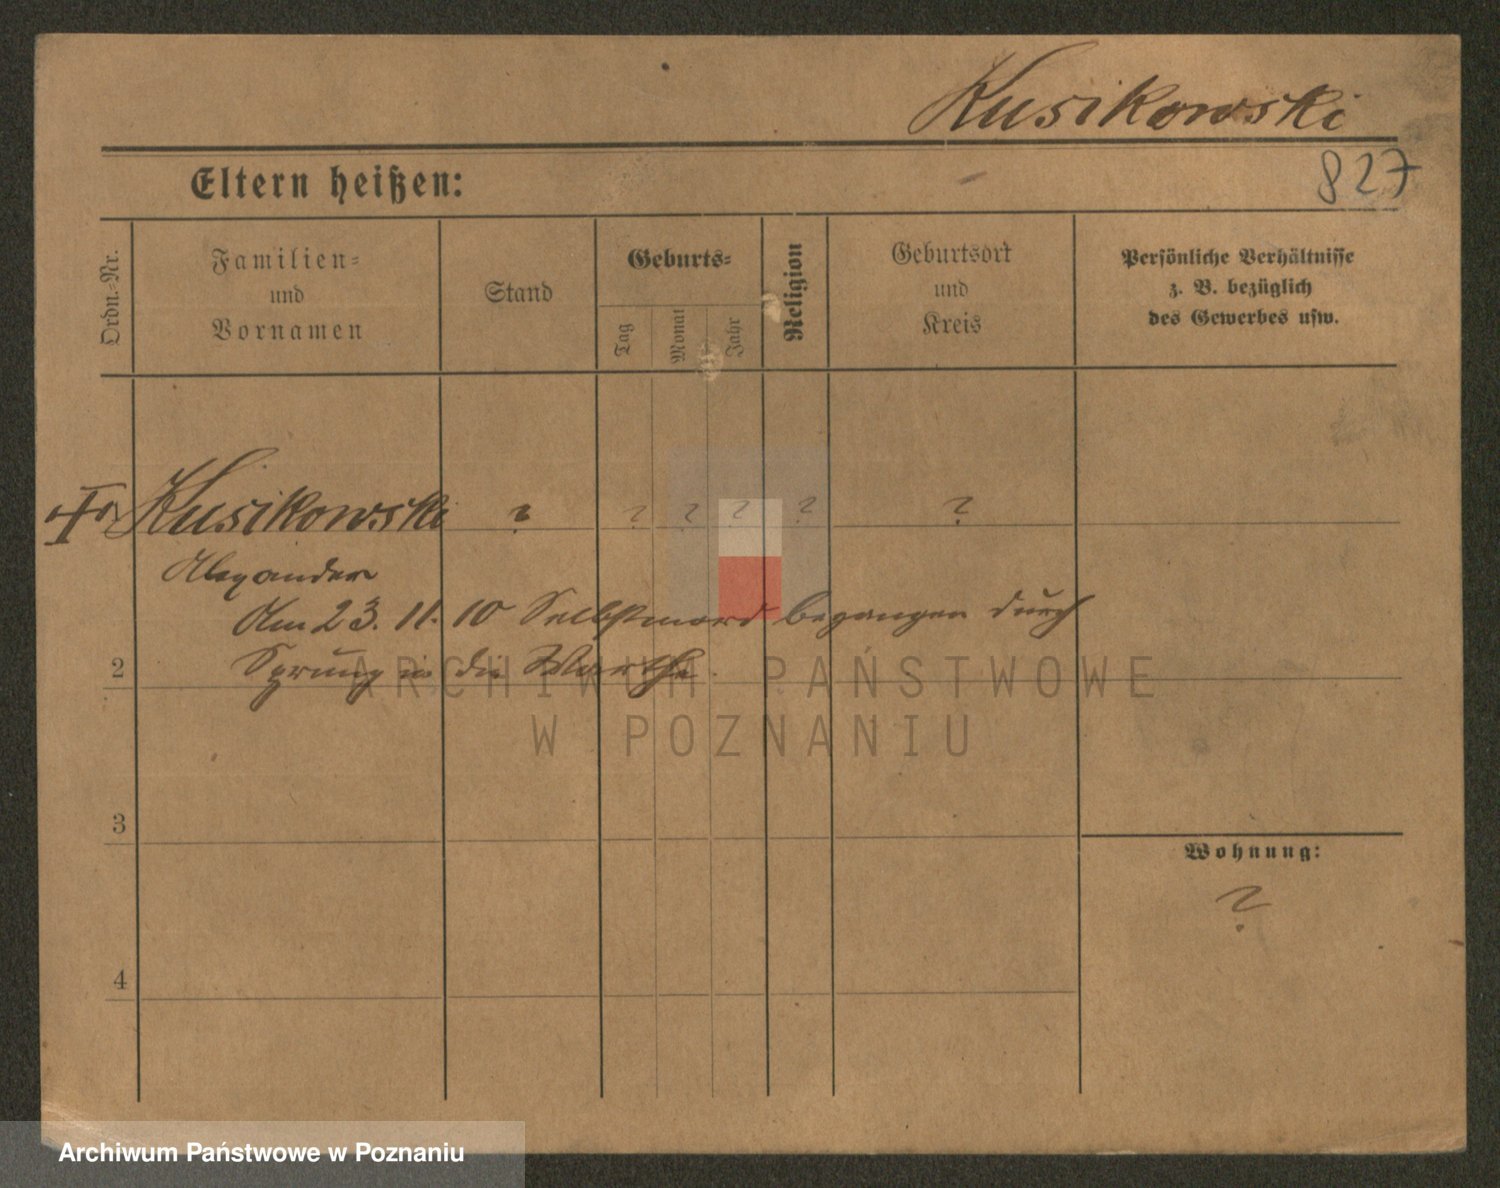 Kusikowski
827
Eltern heißen:
Ordn.-Nr.
Familien-
und
Vornamen
Stand
Geburts-
Tag
Monat
Jahr
Religion
Geburtsort
und
Kreis
Persönliche Verhältnisse
z. B. bezüglich
des Gewerbes usw.
Kusikowski ? ? ? ? ? ?
Alexander
Am 23. 11. 10 Selbstmord begangen durch
2 Sprung in die Warthe.
ARCHIWUM PAŃSTWOWE
W POZNANIU
3
Wohnung:
?
4
Archiwum Państwowe w Poznaniu